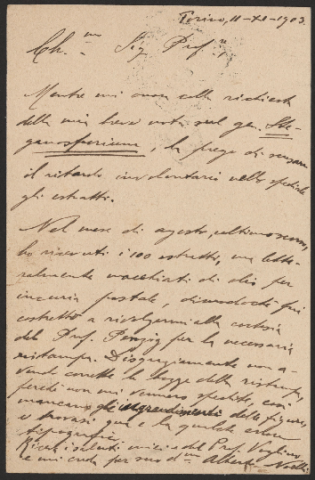 Torino, 11-XI-1903.
Ch.mo Sig. Prof.r
Mentre mi onoro della richiesta
della mia breve nota sul gen. Ste-
ganosporium, la prego di scusare
il ritardo involontario nello spedirle
gli estratti.
Nel mese di agosto, ultimo scorso,
ho ricevuti i 100 estratti, ma lette-
ralmente macchiati di olio per
incuria postale, dimodochè fui
costretto a rivolgermi alla cortesia
del Prof. Penzig per la necessaria
ristampa. Disgraziatamente non a-
vendo corrette le bozze della ristampa,
perchè non mi vennero spedite, così
mancano gli ingrandimenti delle figure,
e trovasi qua e là qualche errore
tipografico.
Riceva i saluti amici del Prof. Voglino
e mi creda per suo d.mo Alberto Noelli